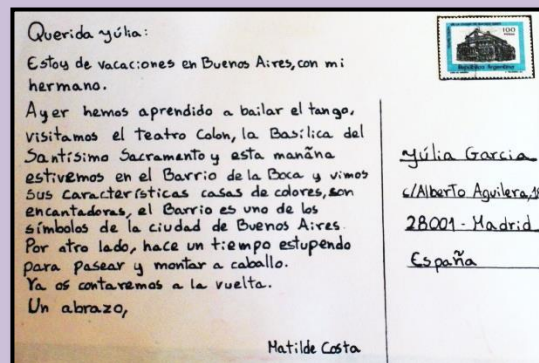 Querida yúlia:
Estoy de vacaciones en Buenos Aires, con mi
hermano.
Ayer hemos aprendido a bailar el tango,
visitamos el teatro Colon, la Basílica del
Santísimo Sacramento y esta manãna
estivemos en el Barrio de la Boca y vimos
sus características casas de colores, son
encantadoras, el Barrio es uno de los
símbolos de la ciudad de Buenos Aires.
Por otro lado, hace un tiempo estupendo
para pasear y montar a caballo.
Ya os contaremos a la vuelta.
Un abrazo,
Matilde Costa
100
República Argentina
yúlia Garcia
c/Alberto Aguilera, 18
28001 - Madrid
España